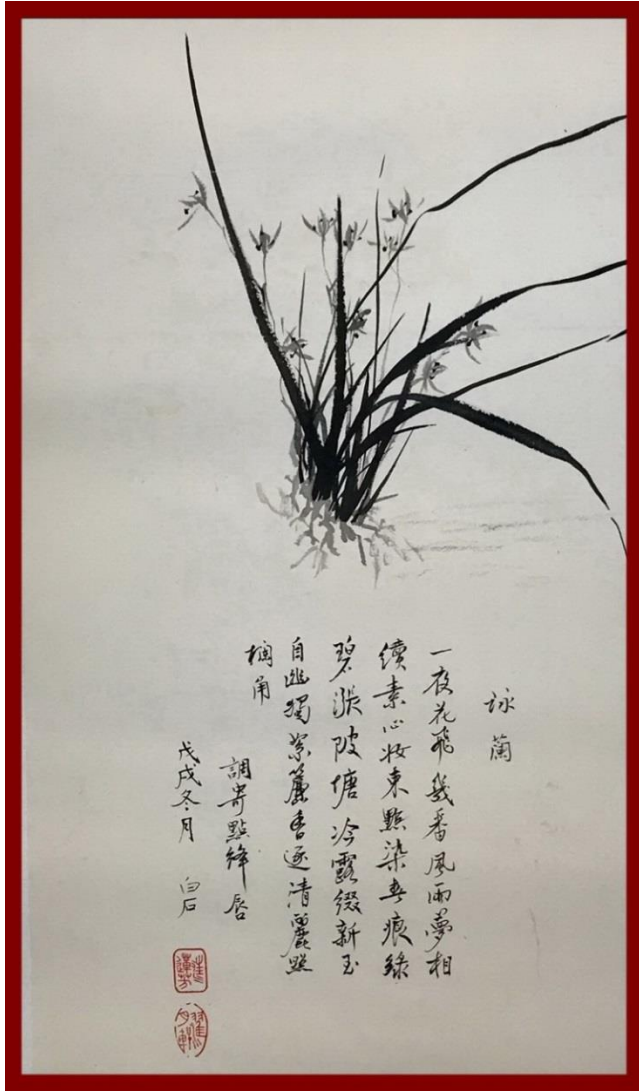 詠蘭
一夜花飛幾番風雨夢相
續素心妝束點染春痕綠
碧漲陂塘冷露綴新玉
自幽獨縈簾香逐清麗照
欄角
調寄點絳唇
戊戌冬月 白石